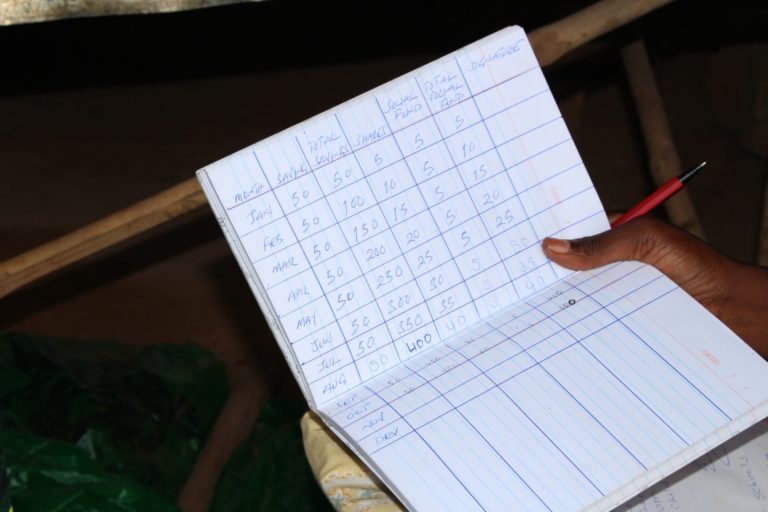 MONTH SAVING TOTAL SAVING SHARES SOCIAL FUND TOTAL SOCIAL FUND SIGNATURE
JAN 50 50 5 5 5
FEB 50 100 10 5 10
MAR 50 150 15 5 15
APR 50 200 20 5 20
MAY 50 250 25 5 25
JUN 50 300 30 5 30
JUL 50 350 35 5 35
AUG 50 400 40 5 40
SEP 50
OCT
NOV
DEV
DATE